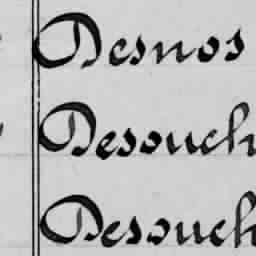 Desnos
Desouch
Desouch